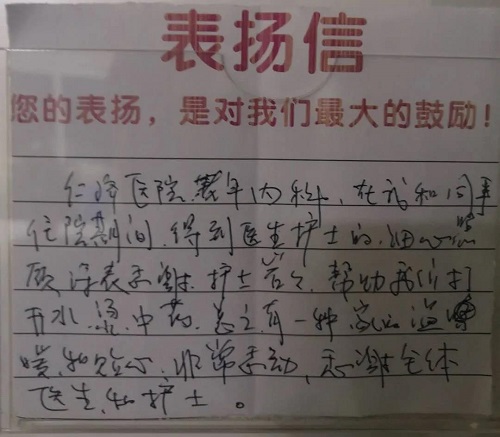 表扬信
您的表扬，是对我们最大的鼓励！
仁济医院老年内科，在我和同事
住院期间，得到医生护士的细心照
顾，深表感谢。护士常常帮助我们打
开水，烫中药，总之有一种家的温
暖和贴心，非常感动，感谢全体
医生和护士。